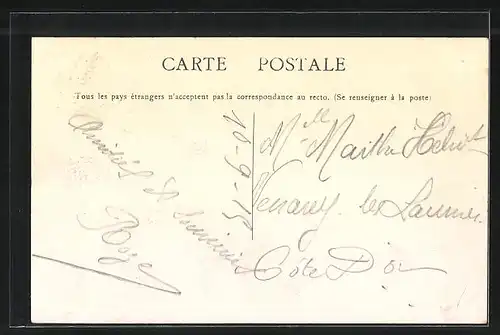 CARTE POSTALE
Tous les pays étrangers n'acceptent pas la correspondance au recto. (Se renseigner à la poste)
10-9-15
Amitiés et
Roze
Mlle
Venarey les Laumes
Côte D'Or